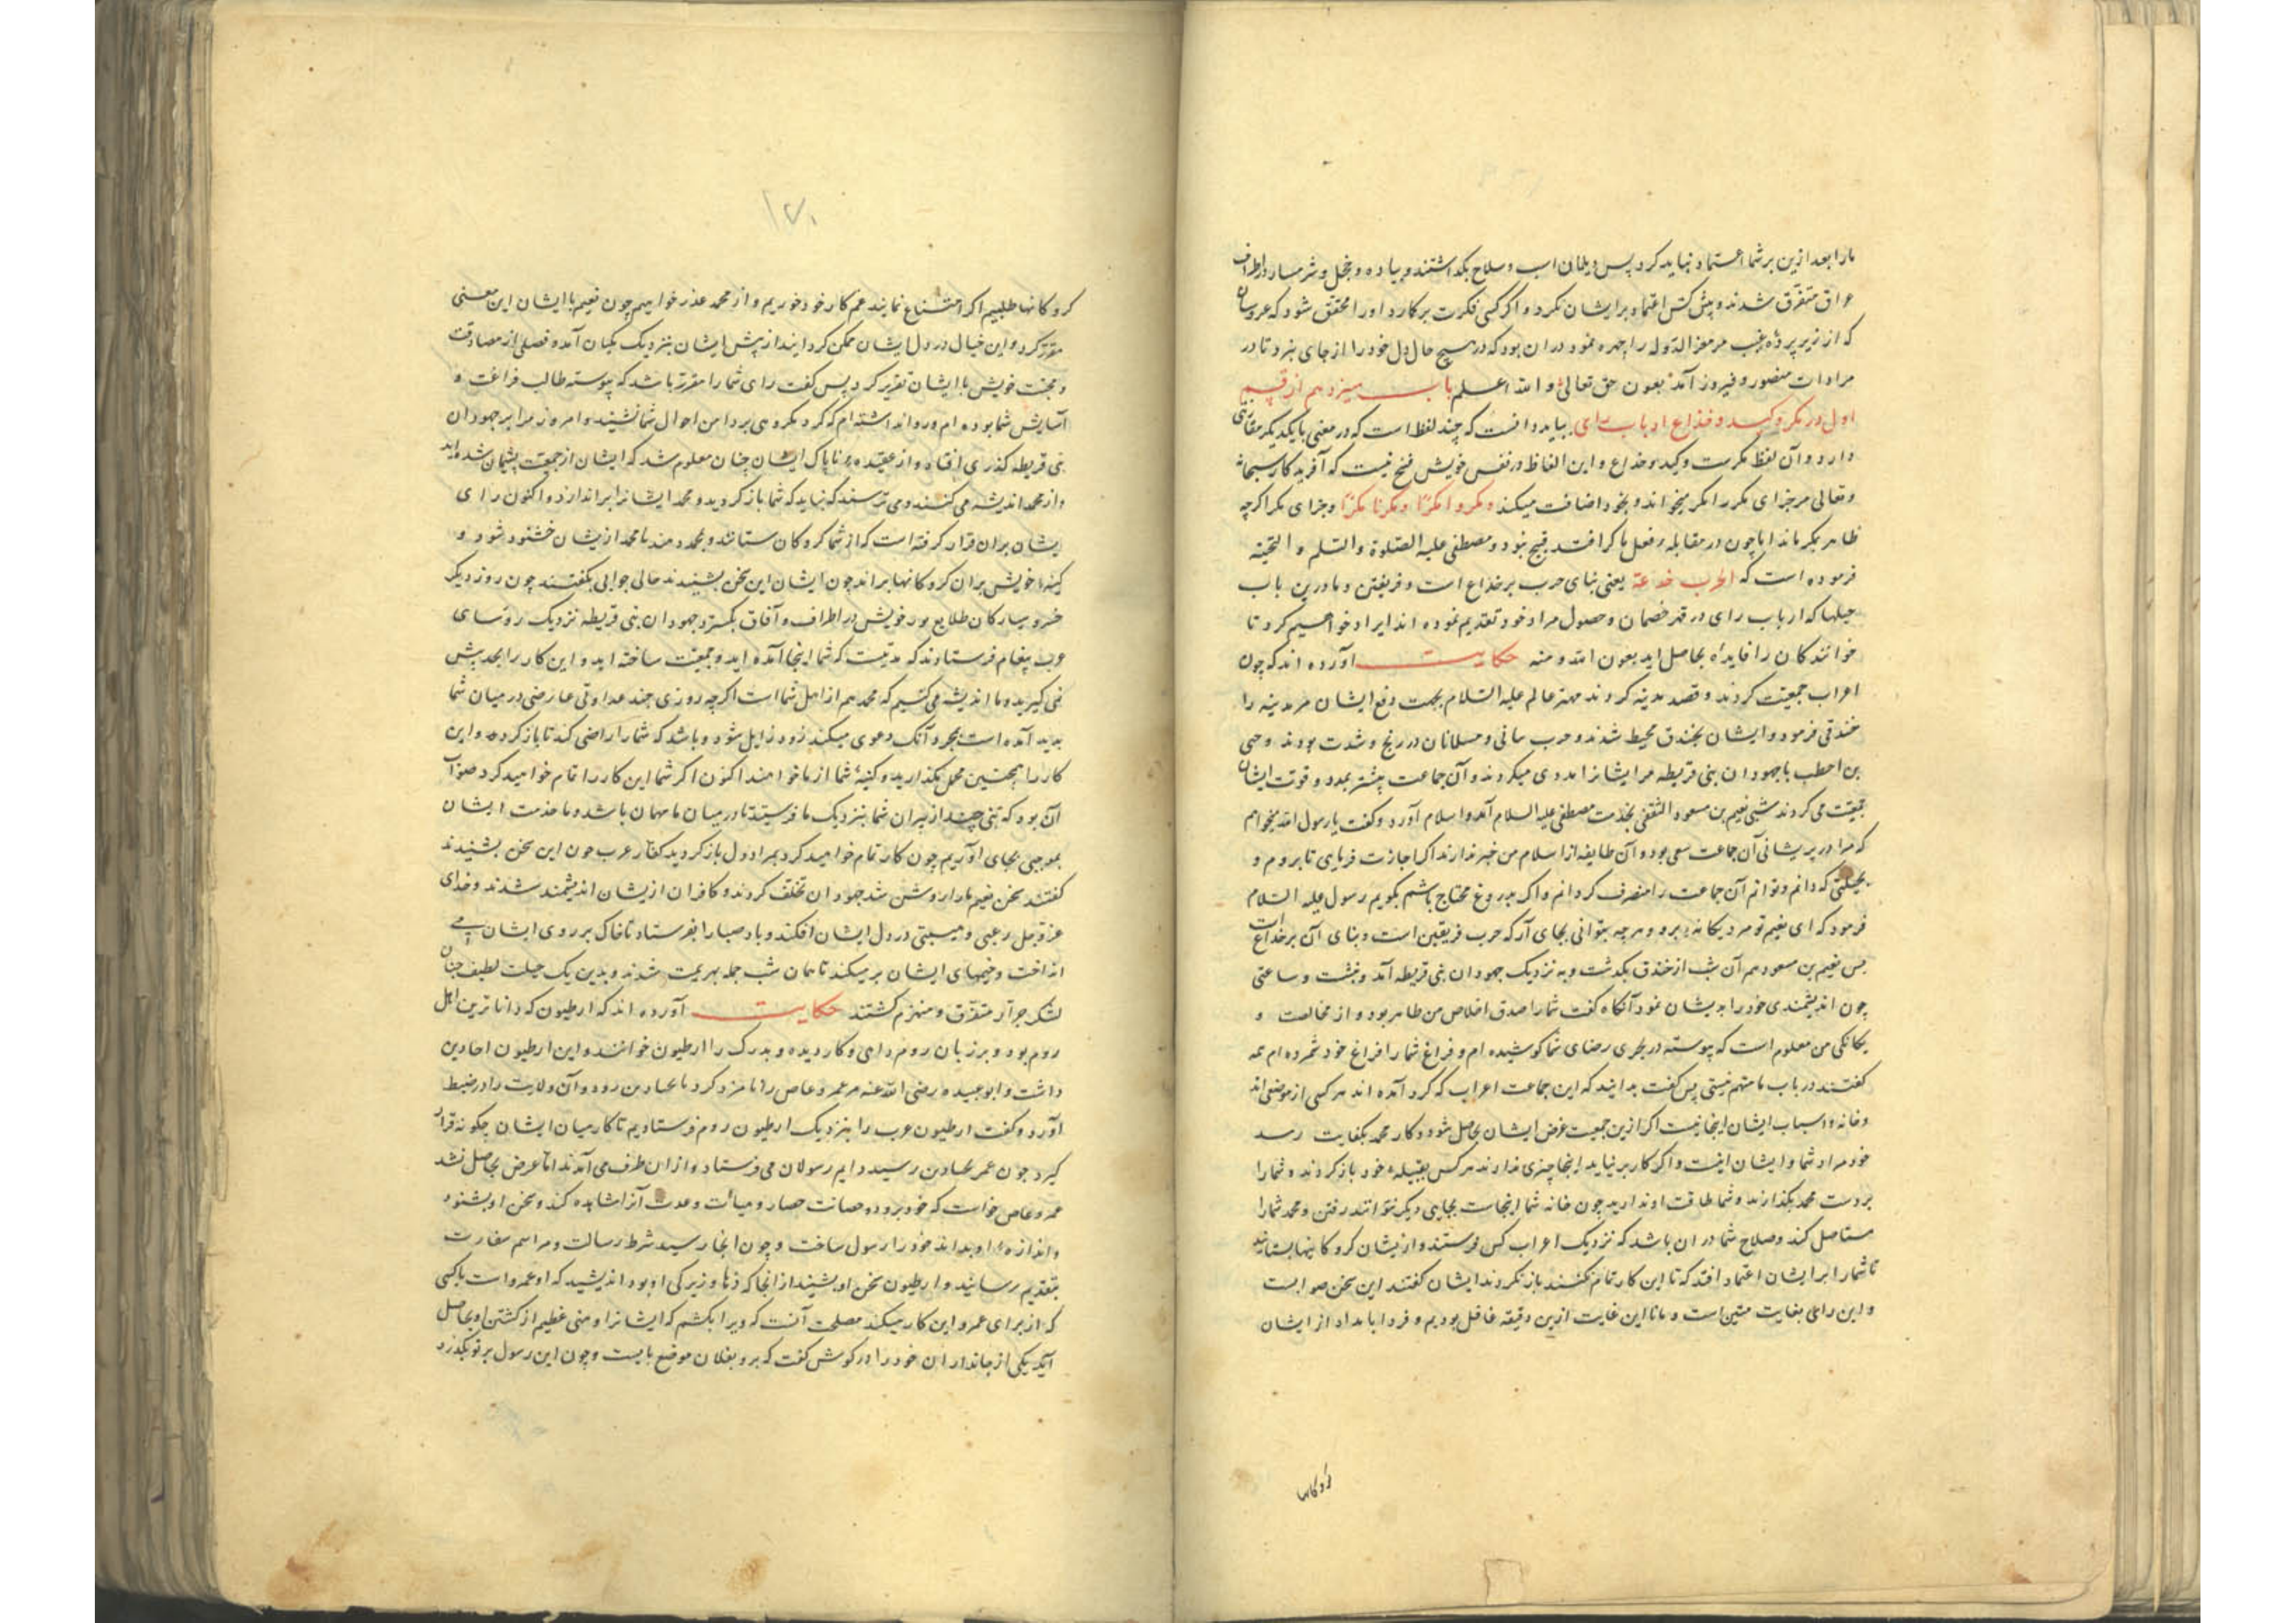 مارا بعد ازین بر شما اعتماد نباید کرد پس دیلمان اسب و سلاح بگذاشتند و پیاده و خجل و شرمسار در اطراف
عراق متفرق شدند و پیش کس اعتماد بر ایشان نکرد و اگر کسی فکرت بر کارد او را محقق شود که عروسان
که از زیر پردهٔ غیب مر معز الدوله را چهره نمود در آن بود که در هیچ حال دل خود را از جای نبرد تا در
مرادات منصور و فیروز آمد بعون حق تعالی و الله اعلم باب سیزدهم از قسم
اول در مکر و کید و خداع ارباب رای بباید دانست که چند لفظ است که در معنی با یکدیگر مقاربتی
دارد و آن لفظ مکرست و کید و خداع و این الفاظ در نفس خویش قبح نیست که آفریدگار سبحانه
و تعالی مر جزای مکر را مکر میخواند و بخود اضافت میکند ومکروا مکرًا ومکرنا مکرًا و جزای مکر اگرچه
ظاهر بمکر ماند اما چون در مقابله فعل ماکر افتد قبیح نبود و مصطفی علیه الصلوة والسلم و التحیته
فرموده است که الحرب خدعة یعنی بنای حرب بر خداع است و فریفتن و ما درین باب
حیلها که ارباب رای در قهر خصمان و حصول مراد خود تقدیم نموده اند ایراد خواهیم کرد تا
خوانندگان را فایده بحاصل اید بعون الله و منه حکایت آورده اند که چون
اعراب جمعیت کردند و قصد مدینه کردند مهتر عالم علیه السلام بجهت دفع ایشان مر مدینه را
خندقی فرمود و ایشان بخندق محیط شدند و حرب سانی و مسلمانان در رنج و شدت بودند و حی
بن احطب با جهودان بنی قریطه مر ایشانرا مددی میکردند و آن جماعت بیشتر بمدد و قوت ایشان
جمعیت می کردند شبی نعیم بن مسعود الثقفی بخدمت مصطفی علیه السلام آمد و اسلام آورد و گفت یا رسول الله میخواهم
که مرا در پریشانی آن جماعت سعی بود و آن طایفه از اسلام من خبر ندارند اگر اجازت فرمایی تا بروم و
بحیلتی که دانم و توانم آن جماعت را منصرف گردانم و اگر بدروغ محتاج باشم بگویم رسول علیه السلام
فرمود که ای نعیم تو مرد یگانهٔ برو و هرچه بتوانی بجای آر که حرب فریقین است و بنای آن بر خداعست
پس نعیم بن مسعود هم آن شب از خندق بگذشت و به نزدیک جهودان بنی قریطه آمد و بنشست و ساعتی
چون اندیشمندی خود را بدیشان نمود آنگاه گفت شما را صدق اخلاص من ظاهر بود و از مخالصت و
یگانگی من معلوم است که پیوسته در تحری رضای شما کوشیده ام و فراغ شما را فراغ خود شمرده ام همه
گفتند در باب ما متهم نیستی پس گفت بدانید که این جماعت اعراب که گرد آمده اند هر کسی از موضعی اند
و خانه و اسباب ایشان اینجا نیست اگر ازین جمعیت غرض ایشان بحاصل شود و کار محمد بکفایت رسد
خود مراد شما و ایشان اینست و اگر کار برنیاید اینجا چیزی ندارند هر کس بقبیلهٔ خود باز گردند و شما را
بر دست محمد بگذارند و شما طاقت او ندارید چون خانه شما اینجاست بجایی دیگر نتوانند رفتن و محمد شما را
مستاصل کند و صلاح شما در آن باشد که نزدیک اعراب کس فرستند و ازیشان گروگانها بستانند
تا شما را بر ایشان اعتماد افتد که تا این کار تمام نکنند باز نگردند ایشان گفتند این سخن صوابست
و این رای بغایت متین است و ما تا این غایت ازین دقیقه غافل بودیم و فردا بامداد از ایشان
گروگانها
۱۷۸
گروگانها طلبیم اگر امتناع نمایند غم کار خود خوریم و از محمد عذر خواهیم چون نعیم با ایشان این معنی
مقرر کرد و این خیال در دل ایشان ممکن گردانید از پیش ایشان بنزدیک مکیان آمد و فصلی از مصادقت
و محبت خویش با ایشان تقریر کرد پس گفت رای شما را مقرر باشد که پیوسته طالب فراغت و
آسایش شما بوده ام و روا نداشته ام که گرد مکروهی بر دامن احوال شما نشیند و امروز مرا بر جهودان
بنی قریطه گذری افتاد و از عقیدهٔ ناپاک ایشان چنان معلوم شد که ایشان از جمعیت پشیمان شده اند
و از محمد اندیشه می کنند و می ترسند که نباید که شما باز گردید و محمد ایشانرا براندازد و اکنون رای
ایشان بر آن قرار گرفته است که از شما گروگان ستانند و بمحمد دهند تا محمد ازیشان خشنود شود و
کینهٔ خویش بر آن گروگانها براند چون ایشان این سخن بشنیدند حالی جوابی نگفتند چون روز دیگر
خسرو سیارگان طلایع نور خویش در اطراف و آفاق بگسترد جهودان بنی قریطه نزدیک روسای
عرب پیغام فرستادند که مدتیست که شما اینجا آمده اید و جمعیت ساخته اید و این کار را بجد پیش
نمی گیرید و ما اندیشه می کنیم که محمد هم از اهل شما است اگرچه روزی چند عداوتی عارضی در میان شما
پدید آمده است بمجرد آنک دعوی میکند زود زایل شود و باشد که شما را راضی کند تا باز گردید و این
کار را همچنین مجمل بگذارید و کینهٔ شما از ما خواهند اکنون اگر شما این کار را تمام خواهید کرد صواب
آن بود که تنی چند از پیران شما بنزدیک ما فرستید تا در میان ما مهمان باشند و ما خدمت ایشان
بموجبی بجای آوریم چون کار تمام خواهید کرد بمراد دل باز گردید کفار عرب چون این سخن بشنیدند
گفتند سخن نعیم ما را روشن شد جهودان تخلف کردند و کافران ازیشان اندیشمند شدند و خدای
عز و جل رعبی و هیبتی در دل ایشان افکند و باد صبا را بفرستاد تا خاک بر روی ایشان می
انداخت و خیمهای ایشان بر میکند تا همان شب جمله بهزیمت شدند و بدین یک حیلت لطیف چنان
لشکر جرار متفرق و منهزم گشتند حکایت آورده اند که ارطیون که داناترین اهل
روم بود و بر زبان روم داهی و کاردیده و بدرگ را ارطیون خوانند و این ارطیون اجنادین
داشت و ابوعبیده رضی الله عنه مر عمرو عاص را نامزد کرد تا باجنادین رود و آن ولایت را در ضبط
آورد و گفت ارطیون عرب را بنزدیک ارطیون روم فرستادیم تا کار میان ایشان چگونه قرار
گیرد چون عمر باجنادین رسید دایم رسولان می فرستاد و از آن طرف می آمدند اما غرض بحاصل نشد
عمرو عاص خواست که خود برود و حصانت حصار و هیات و عدت آنرا مشاهده کند و سخن او بشنود
و اندازهٔ او بداند خود را رسول ساخت و چون آنجا رسید شرط رسالت و مراسم سفارت
بتقدیم رسانید و ارطیون سخن او بشنید از آنجا که ذها و زیرکی او بود اندیشید که او عمرو است یا کسی
که از برای عمرو این کار میکند مصلحت آنست که ویرا بکشم که ایشانرا وهنی عظیم از کشتن او بحاصل
آید یکی از جانداران خود را در گوش گفت که برو بفلان موضع بایست و چون این رسول بر تو بگذرد